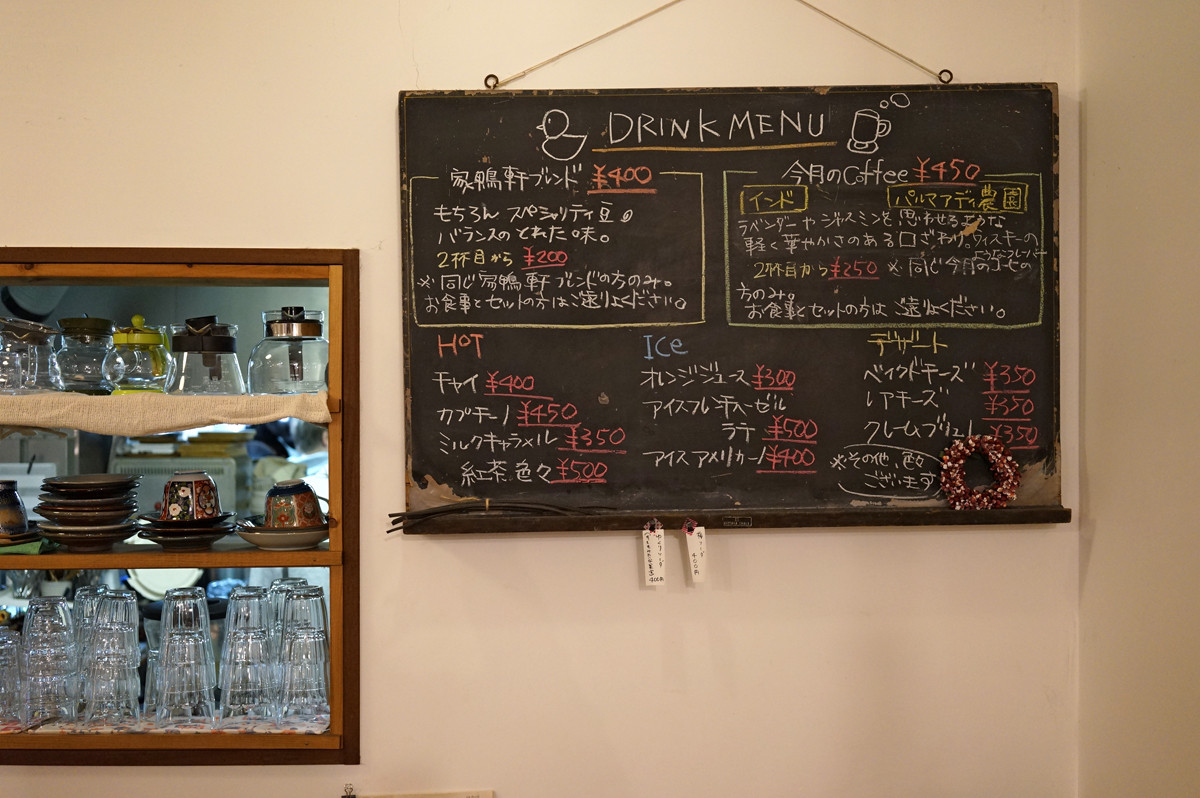 DRINK MENU
家鴨軒ブレンド ¥400
もちろん スペシャリティ豆の
バランスの とれた 味。
2杯目から ¥200
※同じ家鴨軒ブレンドの方のみ。
お食事とセットの方はご遠りょください。
今月のCoffee ¥450
インド パルマアディ農園
ラベンダーや ジャスミンを 思わせるような
軽く華やかさのある口ざわり。ウィスキーの
ようなフレーバー
2杯目から ¥250 ※同じ今月のコーヒーの
方のみ。
お食事とセットの方は ご遠りょください。
HOT
チャイ ¥400
カプチーノ ¥450
ミルクキャラメル ¥350
紅茶色々 ¥500
ICe
オレンジジュース ¥300
アイスフレンチヘーゼル
ラテ ¥500
アイスアメリカーノ ¥400
デザート
ベイクドチーズ ¥350
レアチーズ ¥350
クレームブリュレ ¥350
※その他、色々
ございます
400円
400円